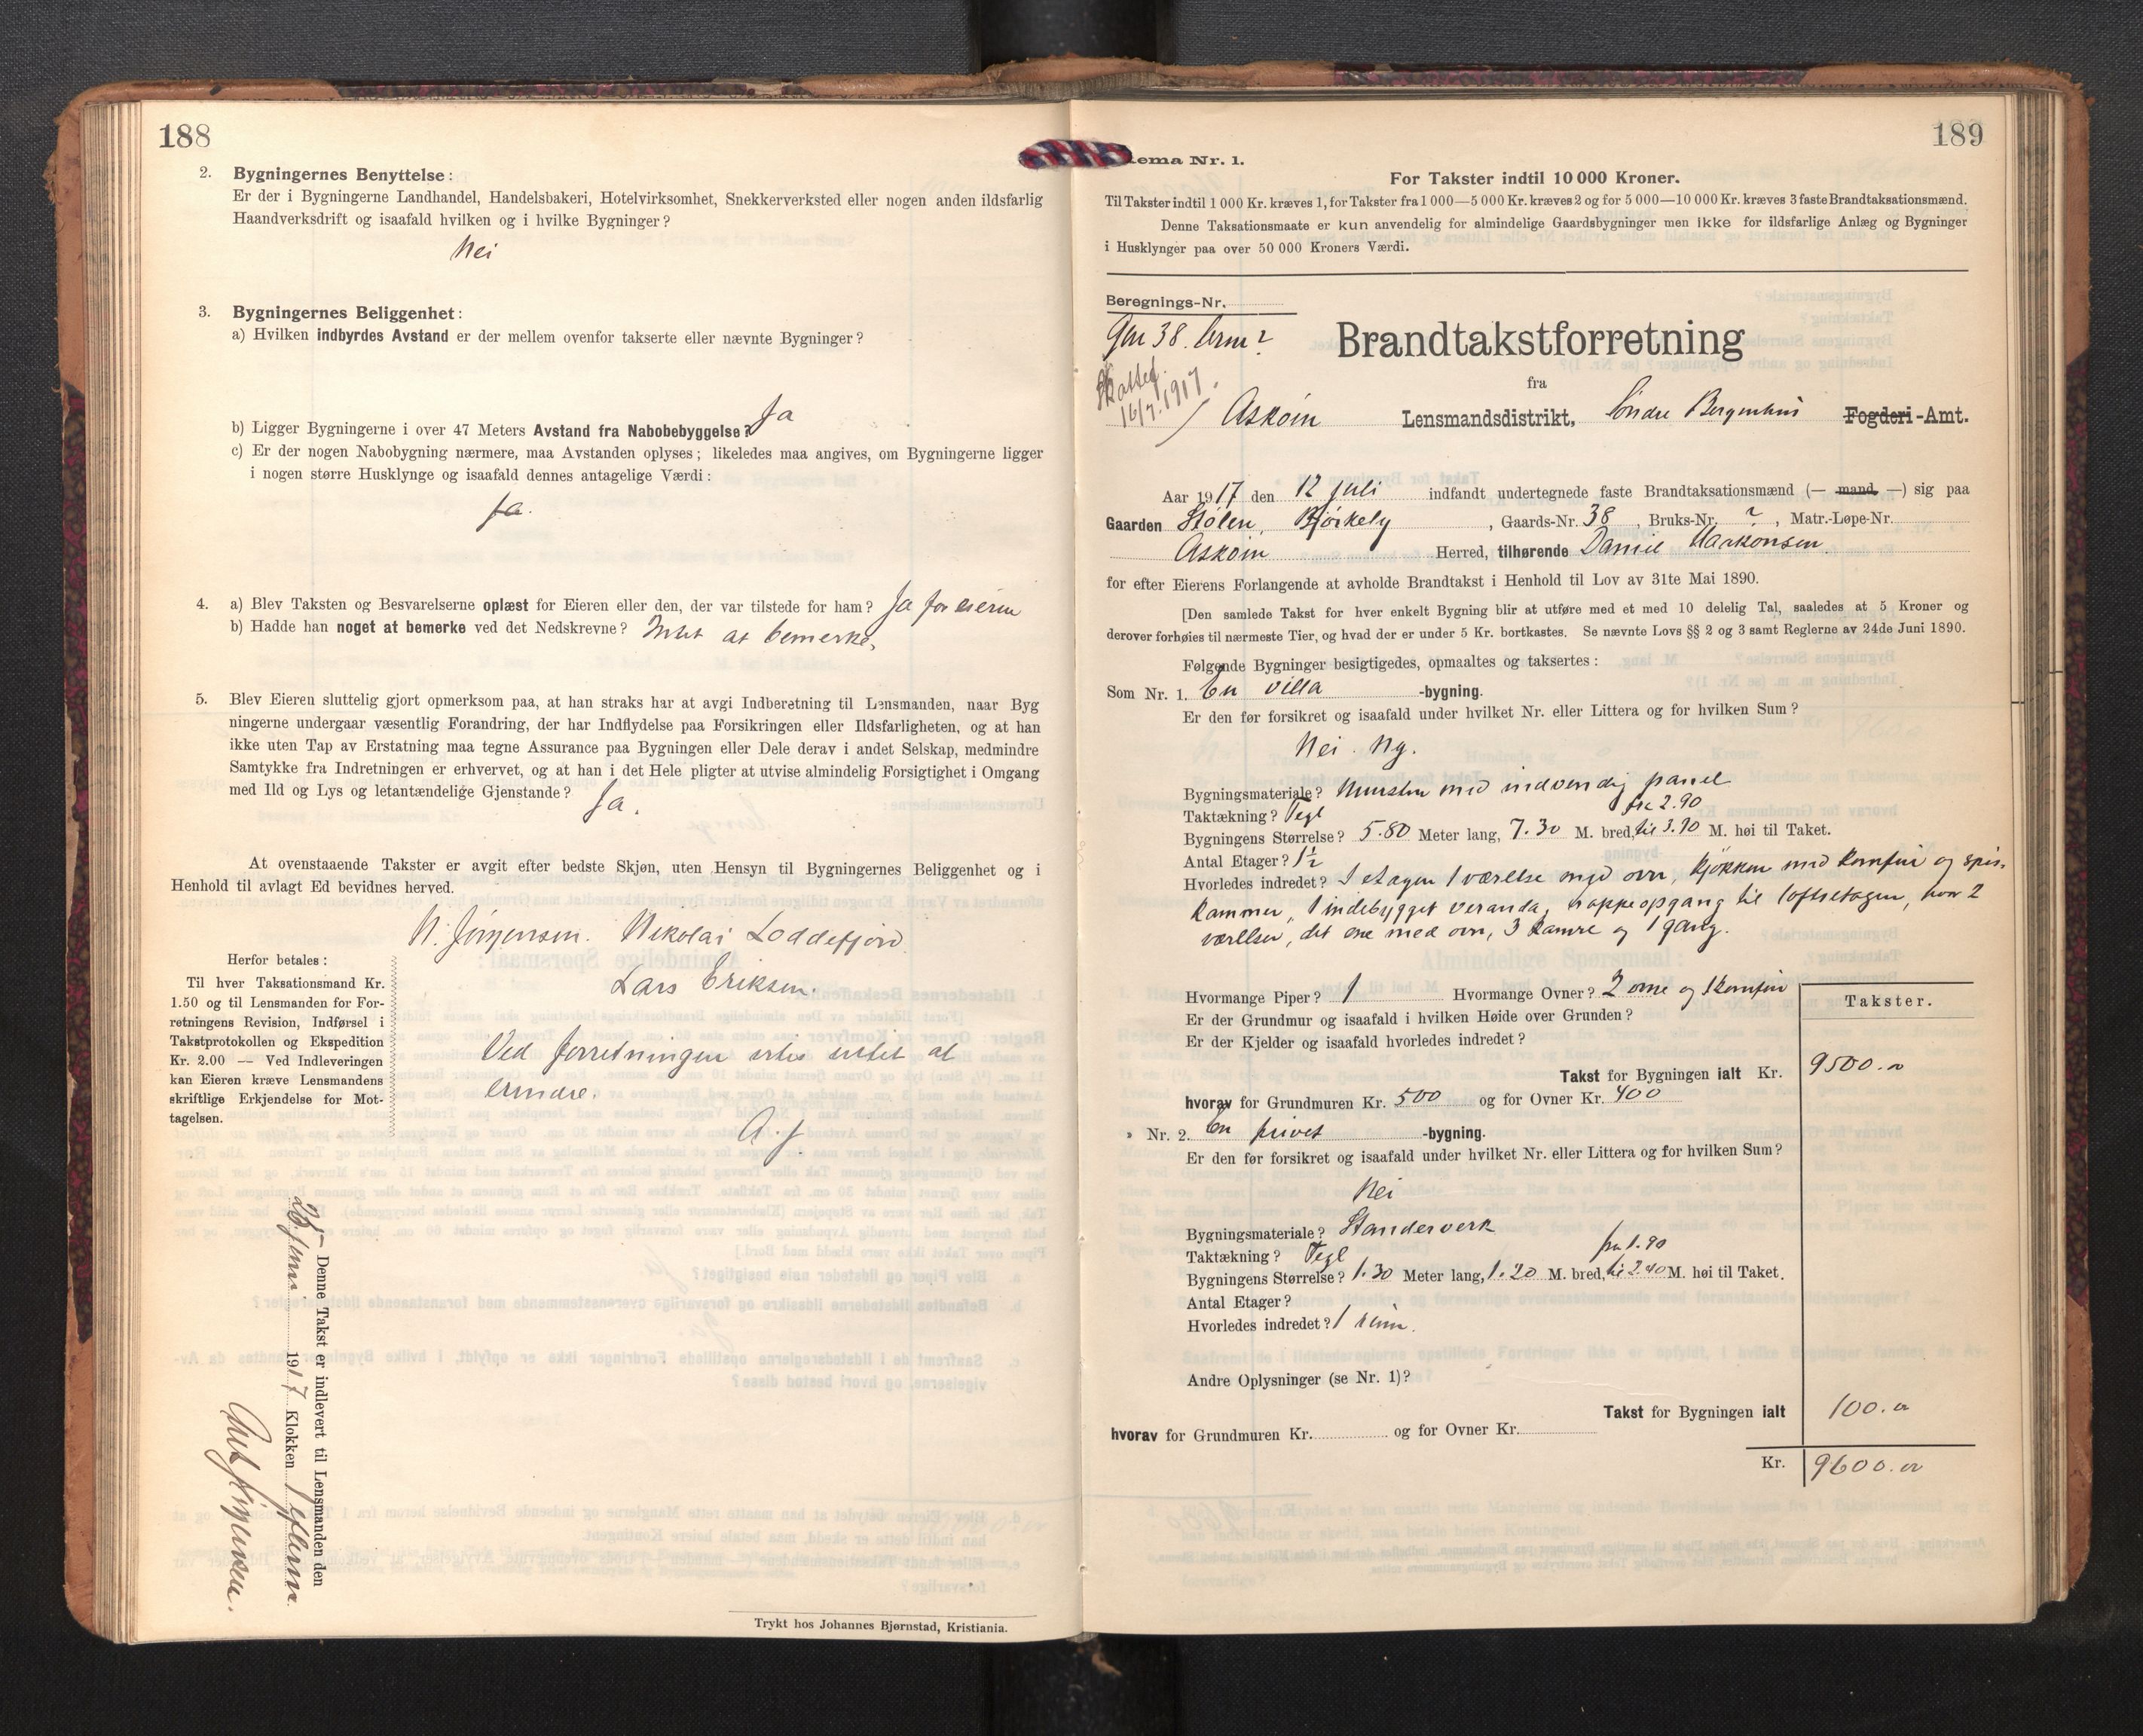 188
2. Bygningernes Benyttelse:
Er der i Bygningerne Landhandel, Handelsbakeri, Hotelvirksomhet, Snekkerverksted eller nogen anden ildsfarlig
Haandverksdrift og isaafald hvilken og i hvilke Bygninger?
Nei
3. Bygningernes Beliggenhet:
a) Hvilken indbyrdes Avstand er der mellem ovenfor takserte eller nævnte Bygninger?
b) Ligger Bygningerne i over 47 Meters Avstand fra Nabobebyggelse? Ja
c) Er der nogen Nabobygning nærmere, maa Avstanden oplyses; likeledes maa angives, om Bygningerne ligger
i nogen større Husklynge og isaafald dennes antagelige Værdi:
Ja.
4. a) Blev Taksten og Besvarelserne oplæst for Eieren eller den, der var tilstede for ham? Ja for eieren
b) Hadde han noget at bemerke ved det Nedskrevne? Intet at bemerke,
5. Blev Eieren sluttelig gjort opmerksom paa, at han straks har at avgi Indberetning til Lensmanden, naar Byg
ningerne undergaar væsentlig Forandring, der har Indflydelse paa Forsikringen eller Ildsfarligheten, og at han
ikke uten Tap av Erstatning maa tegne Assurance paa Bygningen eller Dele derav i andet Selskap, medmindre
Samtykke fra Indretningen er erhvervet, og at han i det Hele pligter at utvise almindelig Forsigtighet i Omgang
med Ild og Lys og letantændelige Gjenstande? Ja.
At ovenstaaende Takster er avgit efter bedste Skjøn, uten Hensyn til Bygningernes Beliggenhet og i
Henhold til avlagt Ed bevidnes herved.
N. Jørgensen. Nikolai Loddefjord
Lars Eriksen.
Herfor betales:
Til hver Taksationsmand Kr.
1.50 og til Lensmanden for For-
retningens Revision, Indførsel i
Takstprotokollen og Ekspedition
Kr. 2.00 — Ved Indleveringen
kan Eieren kræve Lensmandens
skriftlige Erkjendelse for Mot-
tagelsen.
Ved forretningen intet at
erindre.
A. J
Denne Takst er indlevert til Lensmanden den
25 1917 Klokken
Trykt hos Johannes Bjørnstad, Kristiania.
189
ema Nr. 1.
For Takster indtil 10 000 Kroner.
Til Takster indtil 1 000 Kr. kræves 1, for Takster fra 1 000—5 000 Kr. kræves 2 og for 5 000—10 000 Kr. kræves 3 faste Brandtaksationsmænd.
Denne Taksationsmaate er kun anvendelig for almindelige Gaardsbygninger men ikke for ildsfarlige Anlæg og Bygninger
i Husklynger paa over 50 000 Kroners Værdi.
Beregnings-Nr.
Gnr 38. brnr ?
Brandtakstforretning
16/7. 1917.
fra
Askøin Lensmandsdistrikt, Søndre Bergenhus Fogderi-Amt.
Aar 1917 den 12 juli indfandt undertegnede faste Brandtaksationsmænd (— mand —) sig paa
Gaarden Stølen, Bjørkely, Gaards-Nr. 38, Bruks-Nr. ?, Matr.-Løpe-Nr.
Askøin Herred, tilhørende Daniel Haakonsen
for efter Eierens Forlangende at avholde Brandtakst i Henhold til Lov av 31te Mai 1890.
[Den samlede Takst for hver enkelt Bygning blir at utføre med et med 10 delelig Tal, saaledes at 5 Kroner og
derover forhøies til nærmeste Tier, og hvad der er under 5 Kr. bortkastes. Se nævnte Lovs §§ 2 og 3 samt Reglerne av 24de Juni 1890.
Følgende Bygninger besigtigedes, opmaaltes og taksertes:
Som Nr. 1. En villa -bygning.
Er den før forsikret og isaafald under hvilket Nr. eller Littera og for hvilken Sum?
Nei. Ny.
Bygningsmateriale? Mursten med indvendig panel
Taktækning? Tegl
fra 2.90
Bygningens Størrelse? 5.80 Meter lang, 7.30 M. bred, til 3.70 M. høi til Taket.
Antal Etager? 1½
Hvorledes indredet? I etagen 1 værelse med ovn, kjøkken med komfur og spis-
kammer, 1 indebygget veranda, trappeopgang til loftsetagen, hvor 2
værelser, det ene med ovn, 3 kamre og 1 gang.
Hvormange Piper? 1 Hvormange Ovner? 2 ovne og 1 komfur
Takster.
Er der Grundmur og isaafald i hvilken Høide over Grunden?
Er der Kjelder og isaafald hvorledes indredet?
Takst for Bygningen ialt Kr. 9500.00
hvorav for Grundmuren Kr. 500 og for Ovner Kr. 400
" Nr. 2. En privet -bygning.
Er den før forsikret og isaafald under hvilket Nr. eller Littera og for hvilken Sum?
Nei
Bygningsmateriale? Standerverk
Taktækning? Tegl
fra 1.90
Bygningens Størrelse? 1.30 Meter lang, 1.20 M. bred, til 2.40 M. høi til Taket.
Antal Etager?
Hvorledes indredet? 1 rum.
Andre Oplysninger (se Nr. 1)?
Takst for Bygningen ialt 100.00
hvorav for Grundmuren Kr. og for Ovner Kr.
Kr. 9600.00